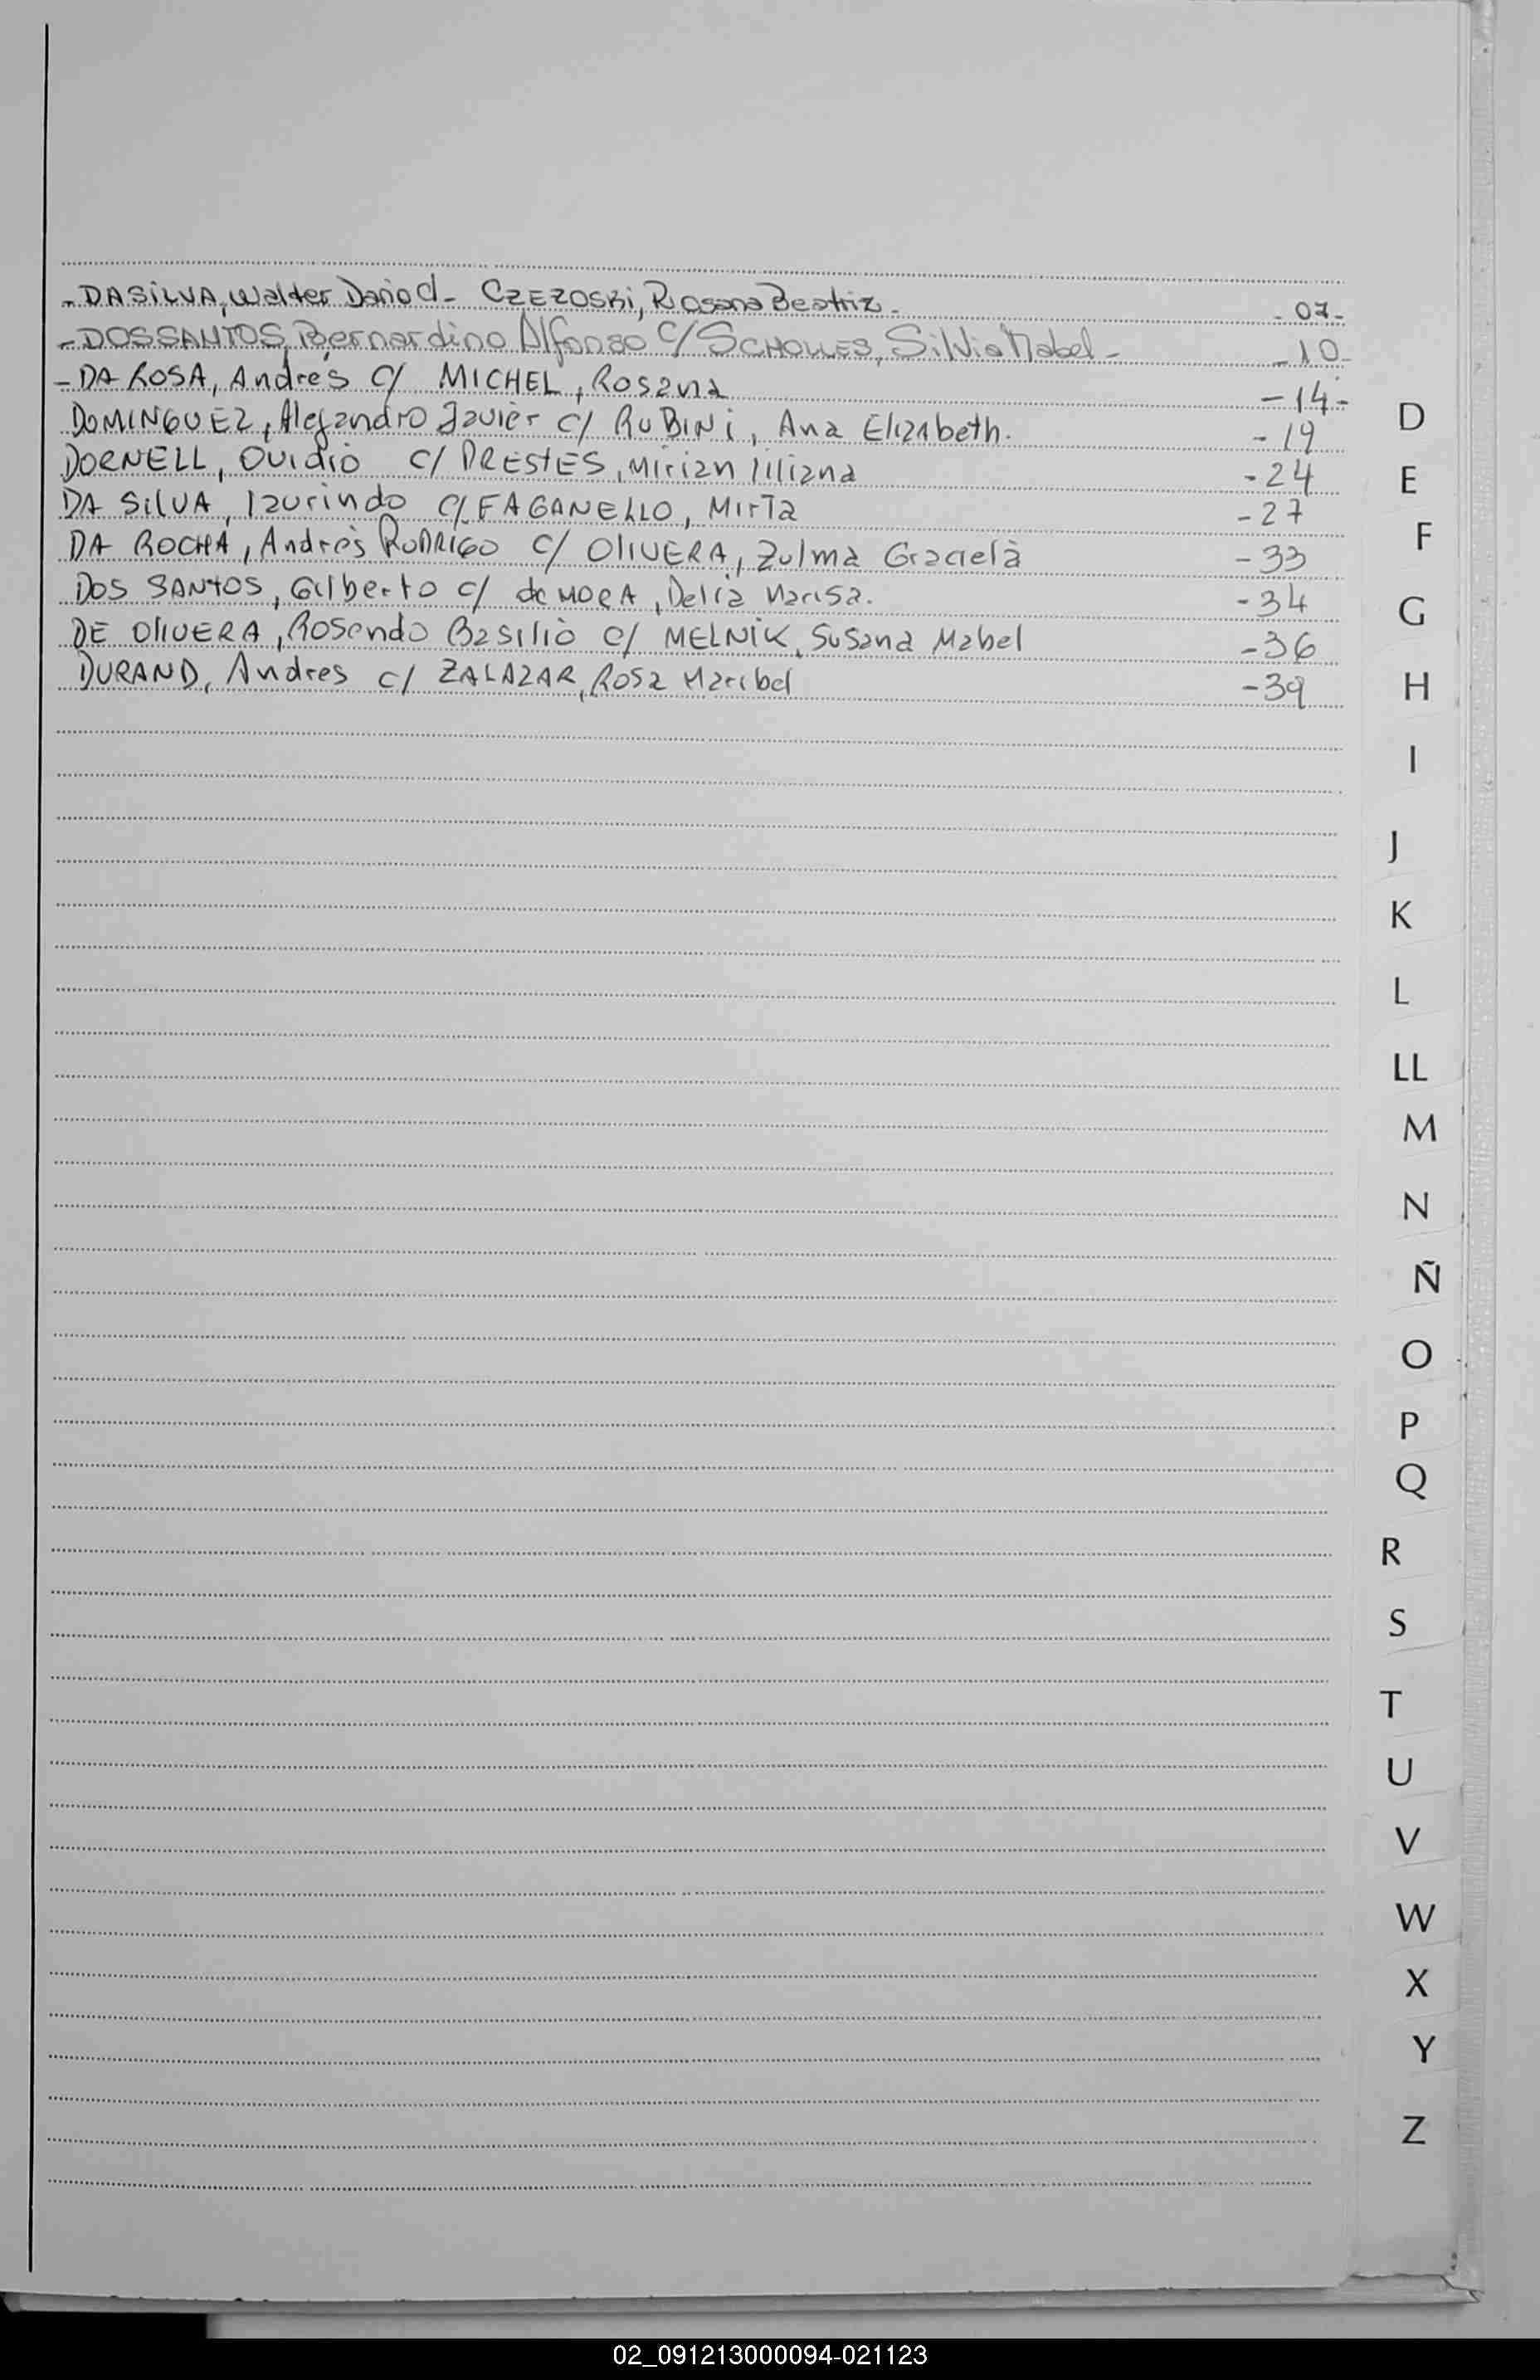 - DA SILVA, Walter Dario c/- CZEZOSKI, Rosana Beatriz - - 07-
- DOS SANTOS, Bernardino Alfonso c/ SCHOLLES, Silvia Mabel - - 10-
- DA ROSA, Andres c/ MICHEL, Rosana - 14-
DOMINGUEZ, Alejandro Javier c/ RUBINI, Ana Elizabeth. - 19
DORNELL, Ovidio c/ PRESTES, Mirian liliana - 24
DA SILVA, laurindo c/ FAGANELLO, Mirta - 27
DA ROCHA, Andrés RODRIGO c/ OLIVERA, Zulma Graciela - 33
DOS SANTOS, Gilberto c/ de MORA, Delia Marisa. - 34
DE OLIVERA, Rosendo Basilio c/ MELNIK, Susana Mabel - 36
DURAND, Andres c/ ZALAZAR, Rosa Maribel - 39
D
E
F
G
H
I
J
K
L
LL
M
N
Ñ
O
P
Q
R
S
T
U
V
W
X
Y
Z
02_091213000094-021123